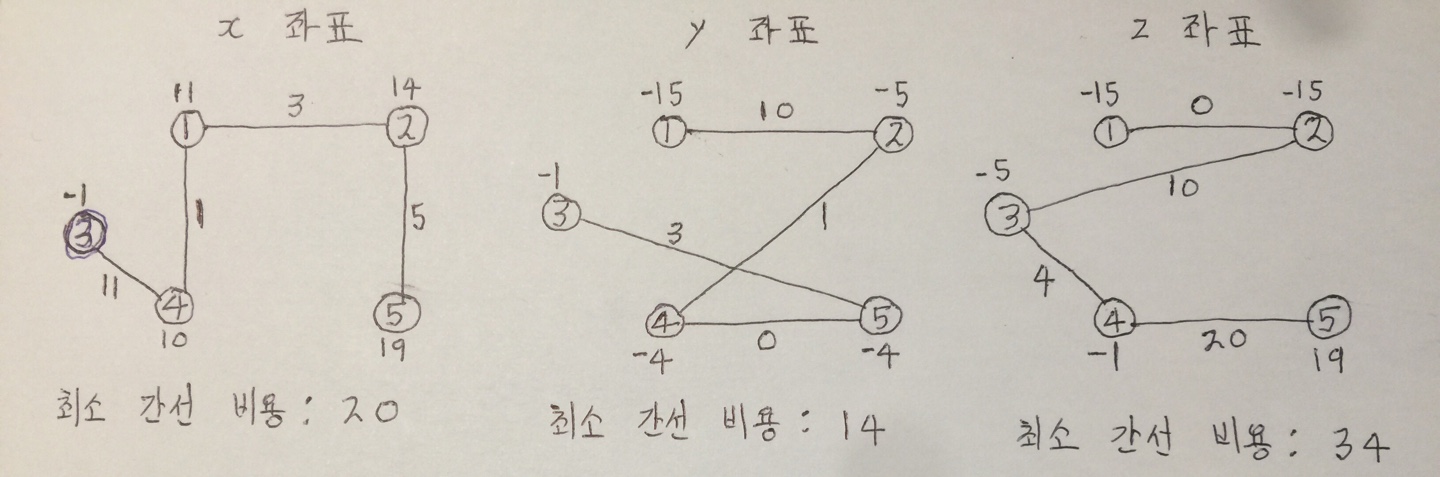 x 좌표
11
14
① 3 ②
-1
③
1
5
11
④
⑤
10
19
최소 간선 비용 : 20
y 좌표
-15
-5
① 10 ②
-1
③
1
3
④
⑤
0
-4
-4
최소 간선 비용 : 14
z 좌표
-15
-15
① 0 ②
-5
③
10
4
④
⑤
20
-1
19
최소 간선 비용 : 34